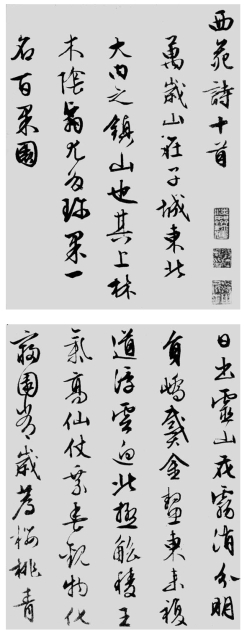 西苑詩十首
萬歲山在子城東北
大內之鎮山也其上林
木陰翳尤多珍果一
名百果園
日出靈山花霧消分明
員嶠戴金鰲東來複
道浮雲迥北極觚稜王
氣高仙仗乘春觀物化
寢園常歲薦櫻桃青